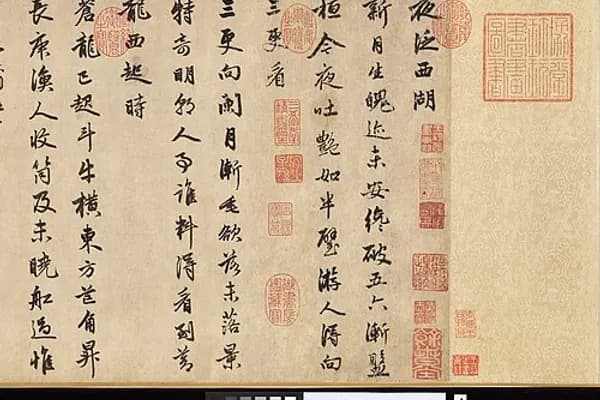 夜泛西湖
新月生魄迹未安纔破五六漸盤
桓今夜吐艷如半璧游人得向
三更看
三更向闌月漸垂欲落未落景
特奇明朝人事誰料得看到蒼
龍西起時
蒼龍已起斗牛橫東方芒角昇
長庚漁人收筒及未曉船過惟